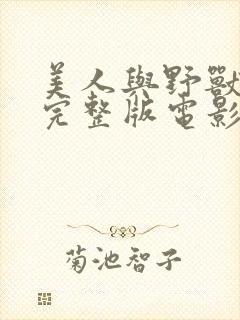 美人與野獸
完整版電影
菊池智子